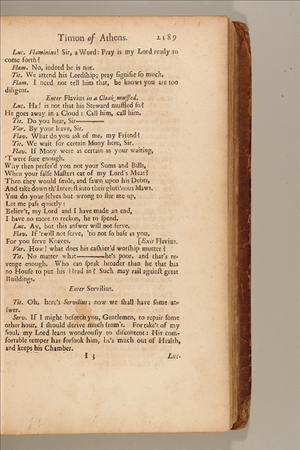 Timon of Athens. 2189
Luc. Flaminius! Sir, a Word: Pray is my Lord ready to
come forth?
Flam. No, indeed he is not.
Tit. We attend his Lordship; pray signifie so much.
Flam. I need not tell him that, he knows you are too
diligent.
Enter Flavius in a Cloak muffled.
Luc. Ha! is not that his Steward muffled so?
He goes away in a Cloud: Call him, call him.
Tit. Do you hear, Sir———
Var. By your leave, Sir.
Flav. What do you ask of me, my Friend?
Tit. We wait for certain Mony here, Sir.
Flav. If Mony were as certain as your waiting,
'Twere sure enough.
Why then prefer'd you not your Sums and Bills,
When your false Masters eat of my Lord's Meat?
Then they would smile, and fawn upon his Debts,
And take down th' Interest into their glutt'nous Maws.
You do your selves but wrong to stir me up,
Let me pass quietly:
Believ't, my Lord and I have made an end,
I have no more to reckon, he to spend.
Luc. Ay, but this answer will not serve.
Flav. If 'twill not serve, 'tis not so base as you,
For you serve Knaves. [Exit Flavius.
Var. How! what does his cashier'd worship mutter?
Tit. No matter what———he's poor, and that's re-
venge enough. Who can speak broader than he that has
no House to put his Head in? Such may rail against great
Buildings.
Enter Servilius.
Tit. Oh, here's Servilius; now we shall have some an-
swer.
Serv. If I might beseech you, Gentlemen, to repair some
other hour, I should derive much from't. For take't of my
Soul, my Lord leans wondrously to discontent: His com-
fortable temper has forsook him, he's much out of Health,
and keeps his Chamber.
I 3 Luc.